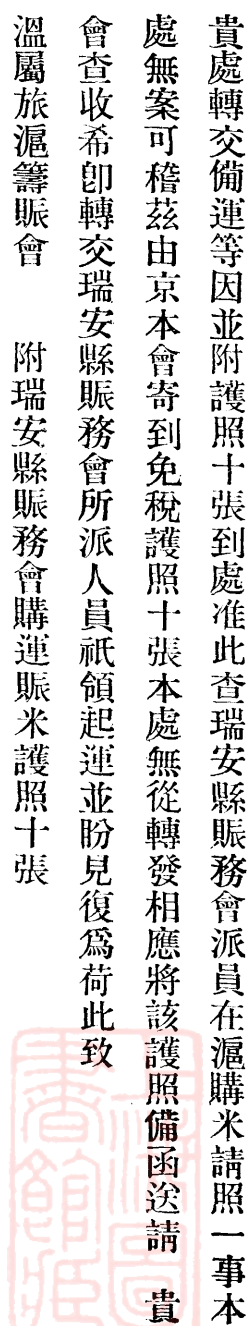 貴處轉交備運等因並附護照十張到處准此查瑞安縣賬務會派員在滬購米請照一事本
處無案可稽茲由京本會寄到免稅護照十張本處無從轉發相應將該護照備函送請　貴
會查收希卽轉交瑞安縣賑務會所派人員祇領起運並盼見復爲荷此致
溫屬旅滬籌賑會　　附瑞安縣賑務會購運賑米護照十張